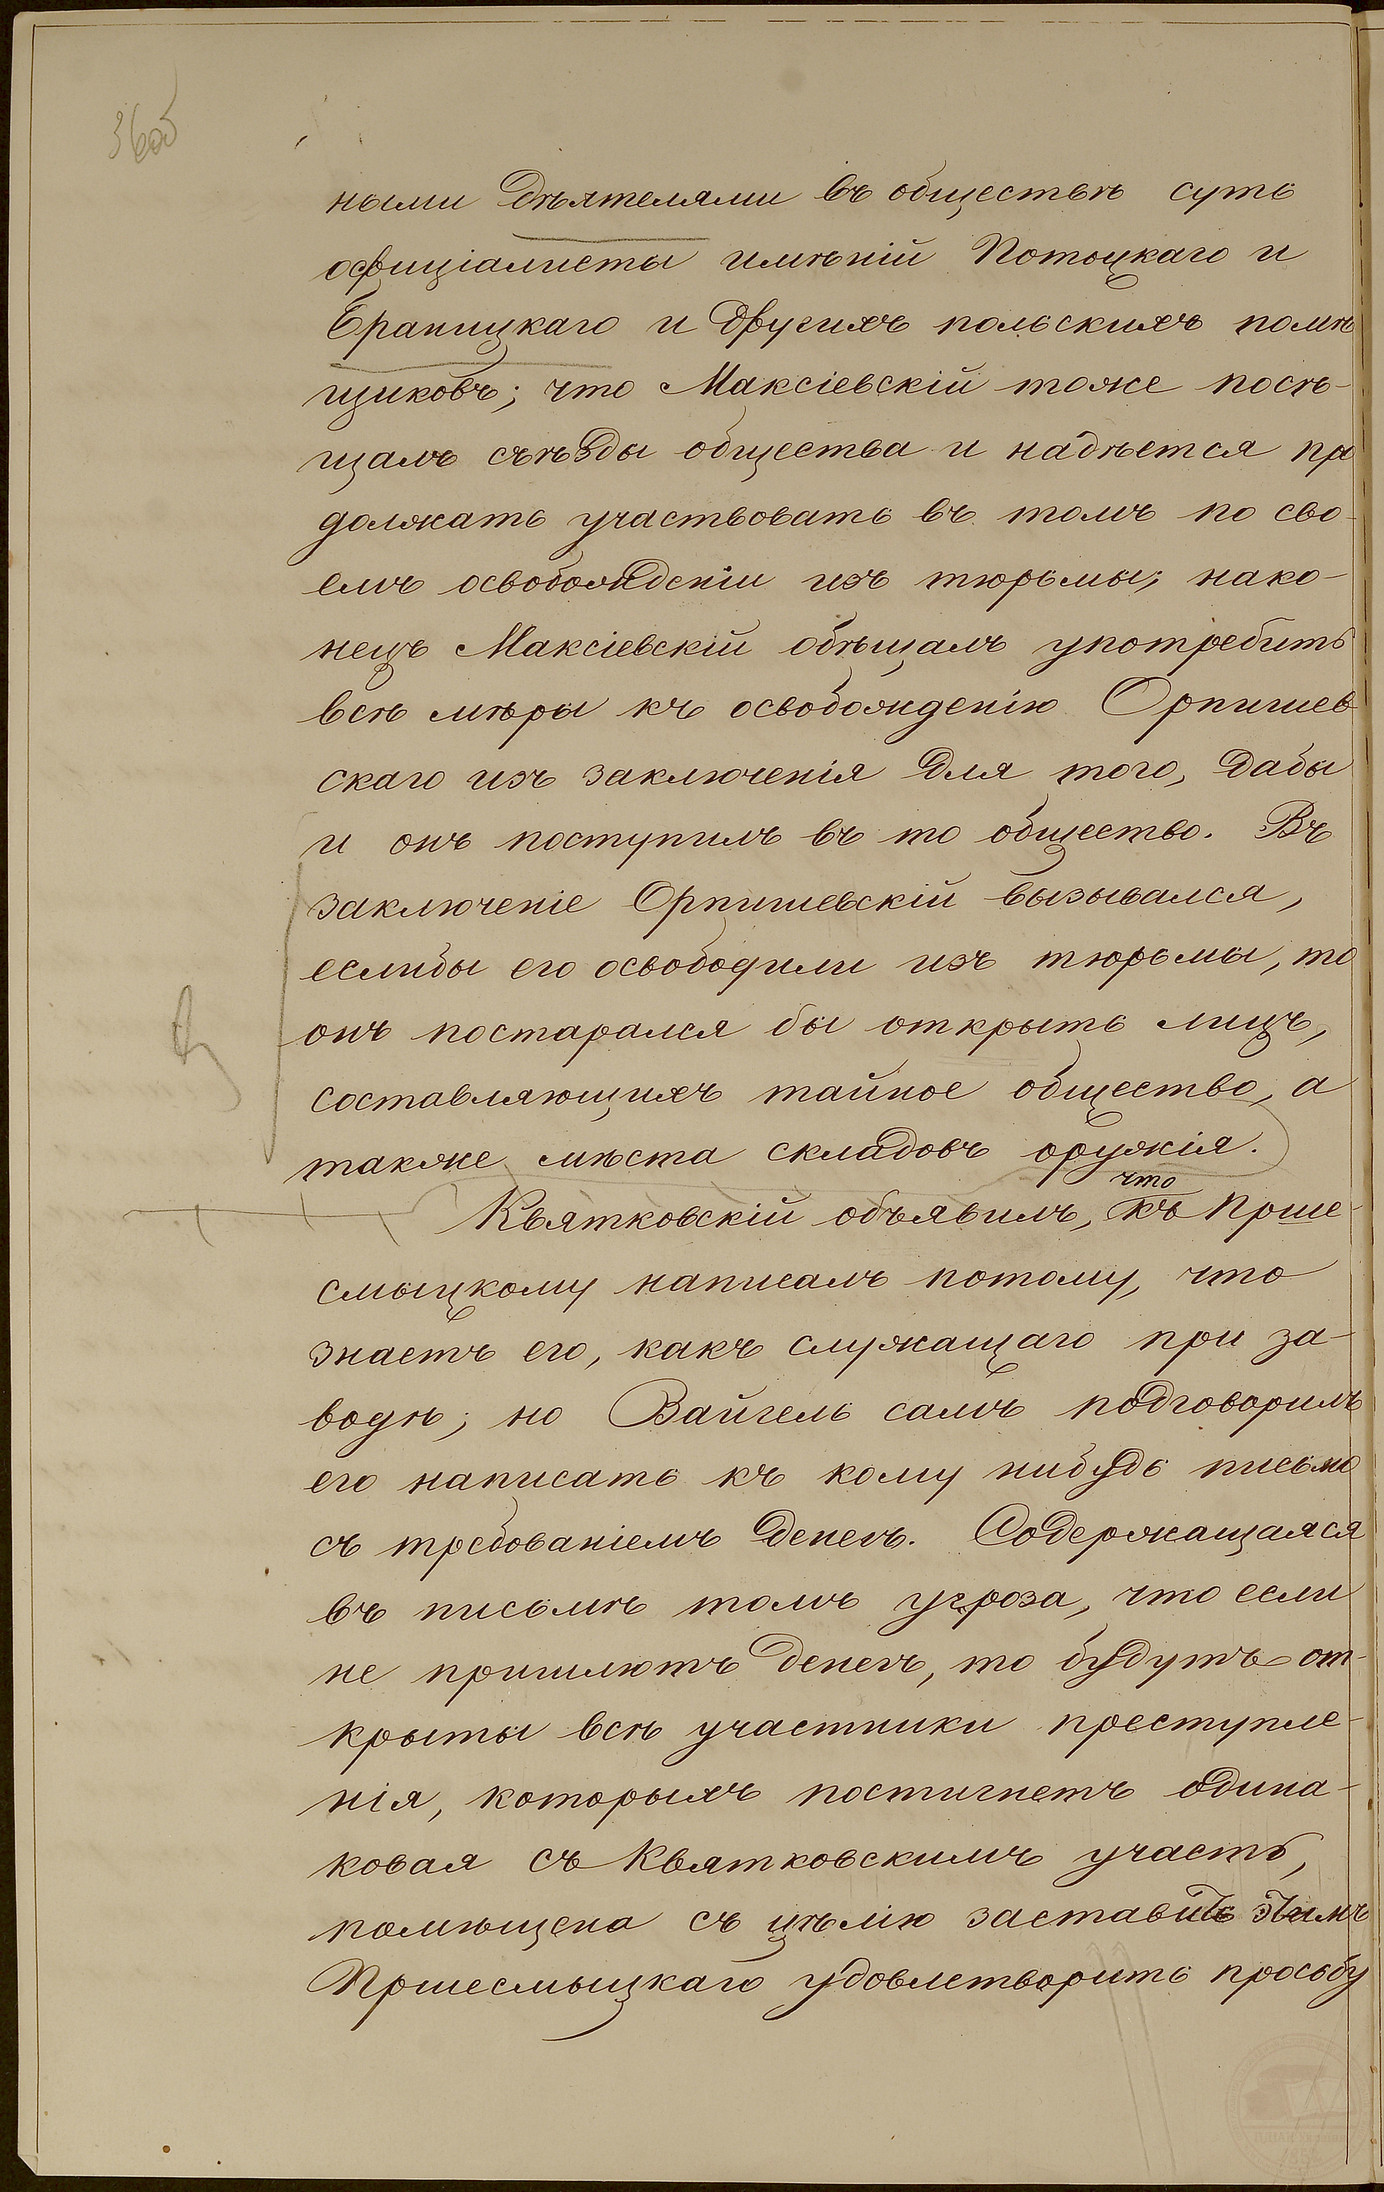 36об
ными дѣятелями въ обществѣ суть
оффиціалисты имѣній Потоцкаго и
Браницкаго и другихъ польскихъ помѣ
щиковъ; что Максіевскій тоже посѣ-
щалъ съѣзды общества и надѣется про
должать участвовать въ томъ по сво-
емъ освобожденіи изъ тюрьмы; нако-
нецъ Максіевскій обѣщалъ употребить
всѣ мѣры къ освобожденію Орпишев-
скаго изъ заключенія для того, дабы
и онъ поступилъ въ то общество. Въ
заключеніе Орпишевскій вызывался,
еслибы его освободили изъ тюрьмы, то
онъ постарался бы открыть лицъ,
составляющихъ тайное общество, а
также мѣста складовъ оружія.
что
Квятковскій объявилъ, къ Прше-
смыцкому написалъ потому, что
знаетъ его, какъ служащаго при за-
водѣ; но Вайгель самъ подговорилъ
его написать къ кому нибудь письмо
съ требованіемъ денегъ. Содержащаяся
въ письмѣ томъ угроза, что если
не пришлютъ денегъ, то будутъ от-
крыты всѣ участники преступле-
нія, которыхъ постигнетъ одина-
ковая съ Квятковскимъ участь,
помѣщена съ цѣлію заставить этимъ
Пршесмыцкаго удовлетворить просьбу